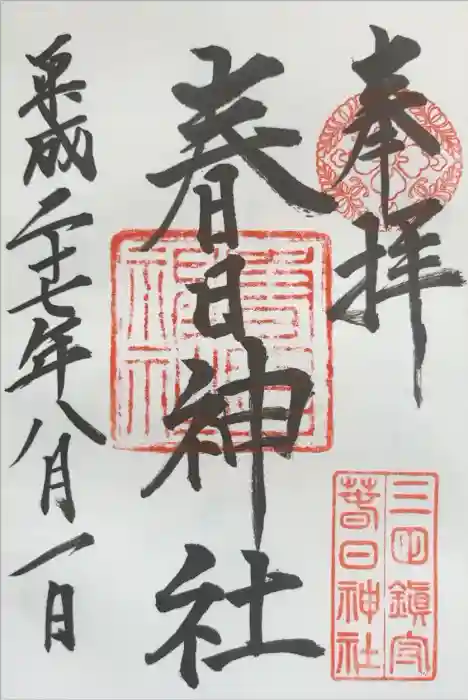 奉拝
三田鎮守
春日神社
春日神社
平成二十七年八月一日